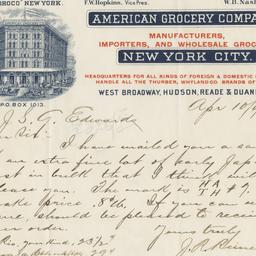 GROCO" NEW YORK.
F.W. Hopkins, Vice Pres.
W.B. Nash
AMERICAN GROCERY COMPA
MANUFACTURERS,
IMPORTERS, AND WHOLESALE GROC
NEW YORK CITY.
HEADQUARTERS FOR ALL KINDS OF FOREIGN & DOMESTIC
HANDLE ALL THE THURBER, WHYLAND CO. BRANDS OF
WEST BROADWAY, HUDSON, READE & DUANE
P.O. BOX 1013.
Apr 10/
J. S. G. Edwards
Sir:
I have mailed you a sa
an extra fine lot of early Jap
in bulk that I think will
please you. The mark is H A # 7.
make price If you can
me, should be pleased to recei
order.
Yours truly
J. R.
Rio, your bid, 23½
29